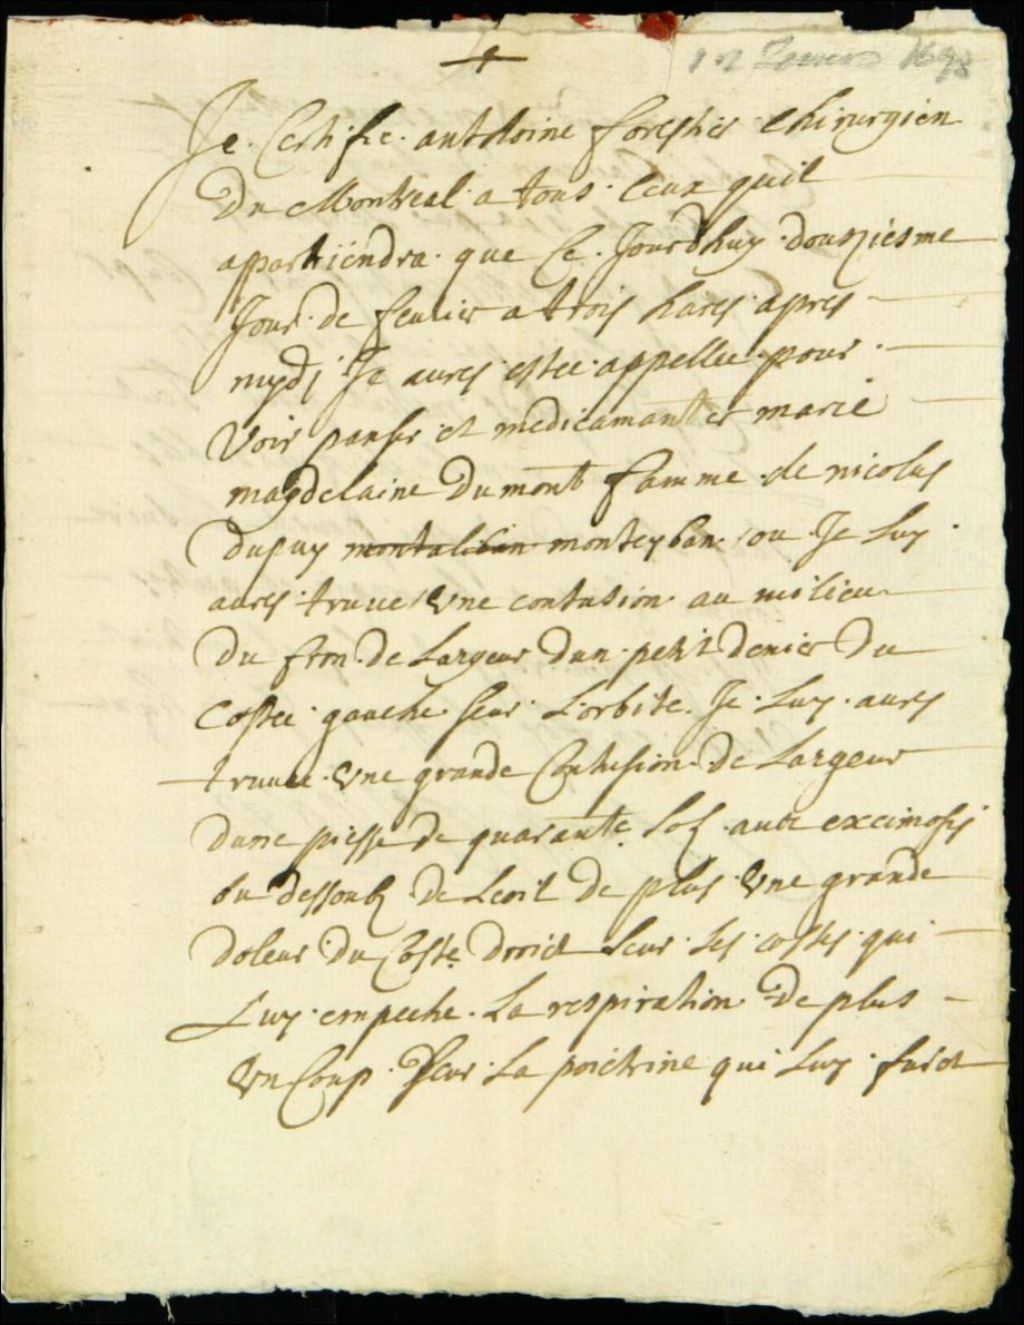 12 1698
Je Certifie anthoine forestier Chirurgien
Du Montreal a tous Ceux quil
apartiendra que Ce Jourdhuy dousziesme
Jour de feuier a trois hares apres
mydi Je aures estee appellee pour
Voir panser et medicamanter marie
magdelaine Dumont famme de nicolas
dupuy montalban monteyban ou Je luy
aures truue vne contusion au milieu
Du fron de Largeur dun petit denier Du
Costee gauche seur Lorbite Je Luy aures
truuee vne grande Contusion de Largeur
dune piesse de quarante sols auec excimosis
ou dessoubz de Leoil de plus vne grande
doleur du Coste droict seur les costes qui
Luy empeche La respiration De plus
vn Coup seur La poictrine qui luy faict